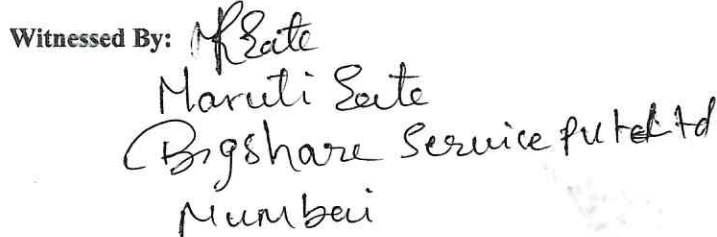 Witnessed By: MREate
Maruti Eate
Bigshare Service Pvt Ltd
Mumbai